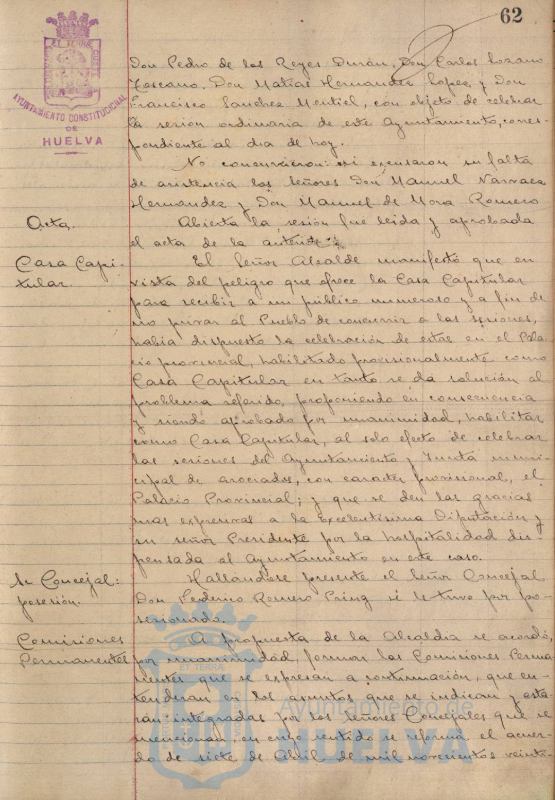 62
PORTUS MARIS ET TERRAE CUSTODIA
AYUNTAMIENTO CONSTITUCIONAL
DE
HUELVA
Don Pedro de los Reyes Durán, Don Carlos Lozano
Toscano, Don Matías Hernandez Lopez, y Don
Francisco Sanchez Montiel, con objeto de celebrar
la sesion ordinaria de este Ayuntamiento, corres-
pondiente al dia de hoy.
No concurrieron ni excusaron su falta
de asistencia los señores Don Manuel Narvaez
Hernandez y Don Manuel de Mora Romero
Acta.
Abierta la sesión fue leida y aprobada
el acta de la anterior.
Casa Capi-
tular.
El Señor Alcalde manifestó que en
vista del peligro que ofrece la Casa Capitular
para recibir a un público numeroso y a fin de
no privar al Pueblo de concurrir a las sesiones,
habia dispuesto la celebración de estas en el Pala-
cio provincial, habilitado provisionalmente como
Casa Capitular en tanto se da solución al
problema referido, proponiendo en consecuencia
y siendo aprobado por unanimidad, habilitar
como Casa Capitular, al solo efecto de celebrar
las sesiones del Ayuntamiento y Junta muni-
cipal de asociados, con caracter provisional, el
Palacio Provincial; y que se den las gracias
mas expresivas a la Excelentísima Diputación y
su señor Presidente por la hospitalidad dis-
pensada al Ayuntamiento en este caso.
Sr. Concejal:
posesión.
Hallándose presente el Señor Concejal
Don Federico Romero Pring se le tuvo por po-
sesionado.
Comisiones
Permanentes
A propuesta de la Alcaldia se acordó,
por unanimidad, formar las Comisiones Perma-
nentes que se expresan a continuación, que en-
tenderan en los asuntos que se indican y esta-
ran integradas por los Señores Concejales que se
mencionan en cuyo sentido se reforma el acuer-
do de siete de Abril de mil novecientos veinti-
ET TERRA
Ayuntamiento de
HUELVA